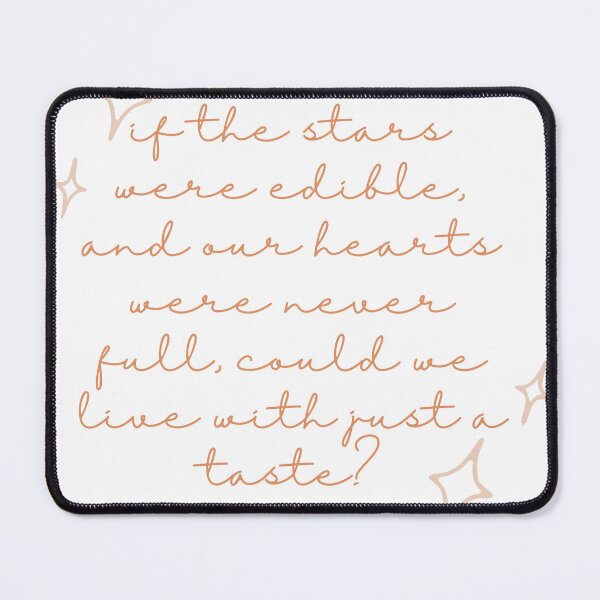 if the stars
were edible,
and our hearts
were never
full, could we
live with just a
taste?